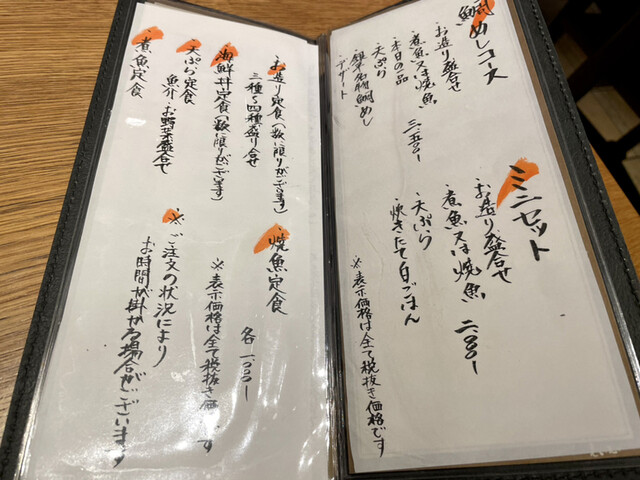 鯛めしコース
・お造り盛合せ
・煮魚又は焼魚 三、五〇〇ー
・本日の一品
・天ぷら
・銀水名物鯛めし
・デザート
ミニセット
・お造り盛合せ
・煮魚又は焼魚 二、〇〇〇ー
・天ぷら
・炊きたて白ごはん
※表示価格は全て税抜き価格です
・お造り定食(数に限りがございます)
三種〜四種盛り合せ
・海鮮丼定食(数に限りがございます)
・天ぷら定食
魚介・お野菜盛合せ
・煮魚定食
・焼魚定食
各 一、〇〇〇ー
※表示価格は全て税抜き価格です
※ご注文の状況により
お時間が掛かる場合がございます